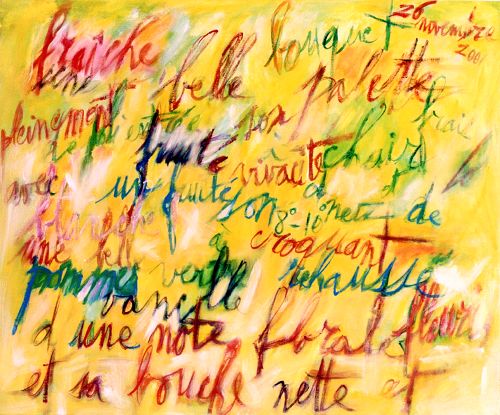 fraîche bouquet 26 novembre
une belle palette
pleinement son frais
fruité vivacité chair
avec un fruité
blanche son 8°-10° nez de
une belle croquant
pommes verte rehaussé
vanille
d'une note florale fleurs
et sa bouche nette et